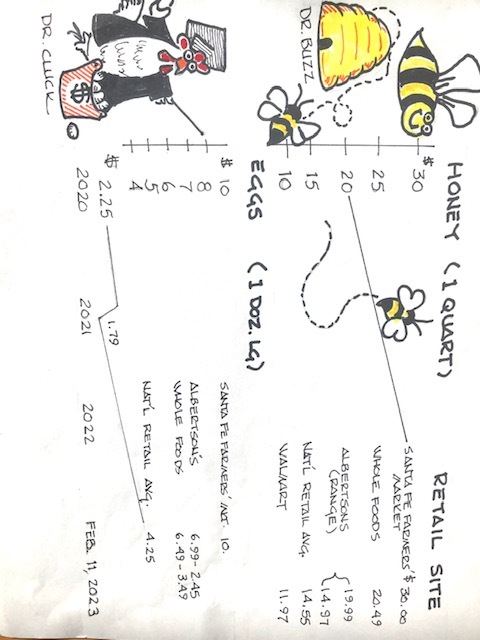 HONEY (1 QUART) RETAIL SITE
$
30 SANTA FE FARMERS' $30.00
MARKET
25 WHOLE FOODS 20.49
20 ALBERTSONS 19.99
(RANGE) 14.97
15 NAT'L RETAIL AVG. 14.55
10 WALMART 11.97
DR. BUZZ
EGGS (1 DOZ. LG)
$
10 SANTA FE FARMERS' MKT. 10.
8
7 ALBERTSON'S 6.99-2.45
6 WHOLE FOODS 6.49-3.49
5 NAT'L RETAIL AVG. 4.25
4
$
2.25 1.79
2020 2021 2022 FEB. 11, 2023
$
DR. CLUCK